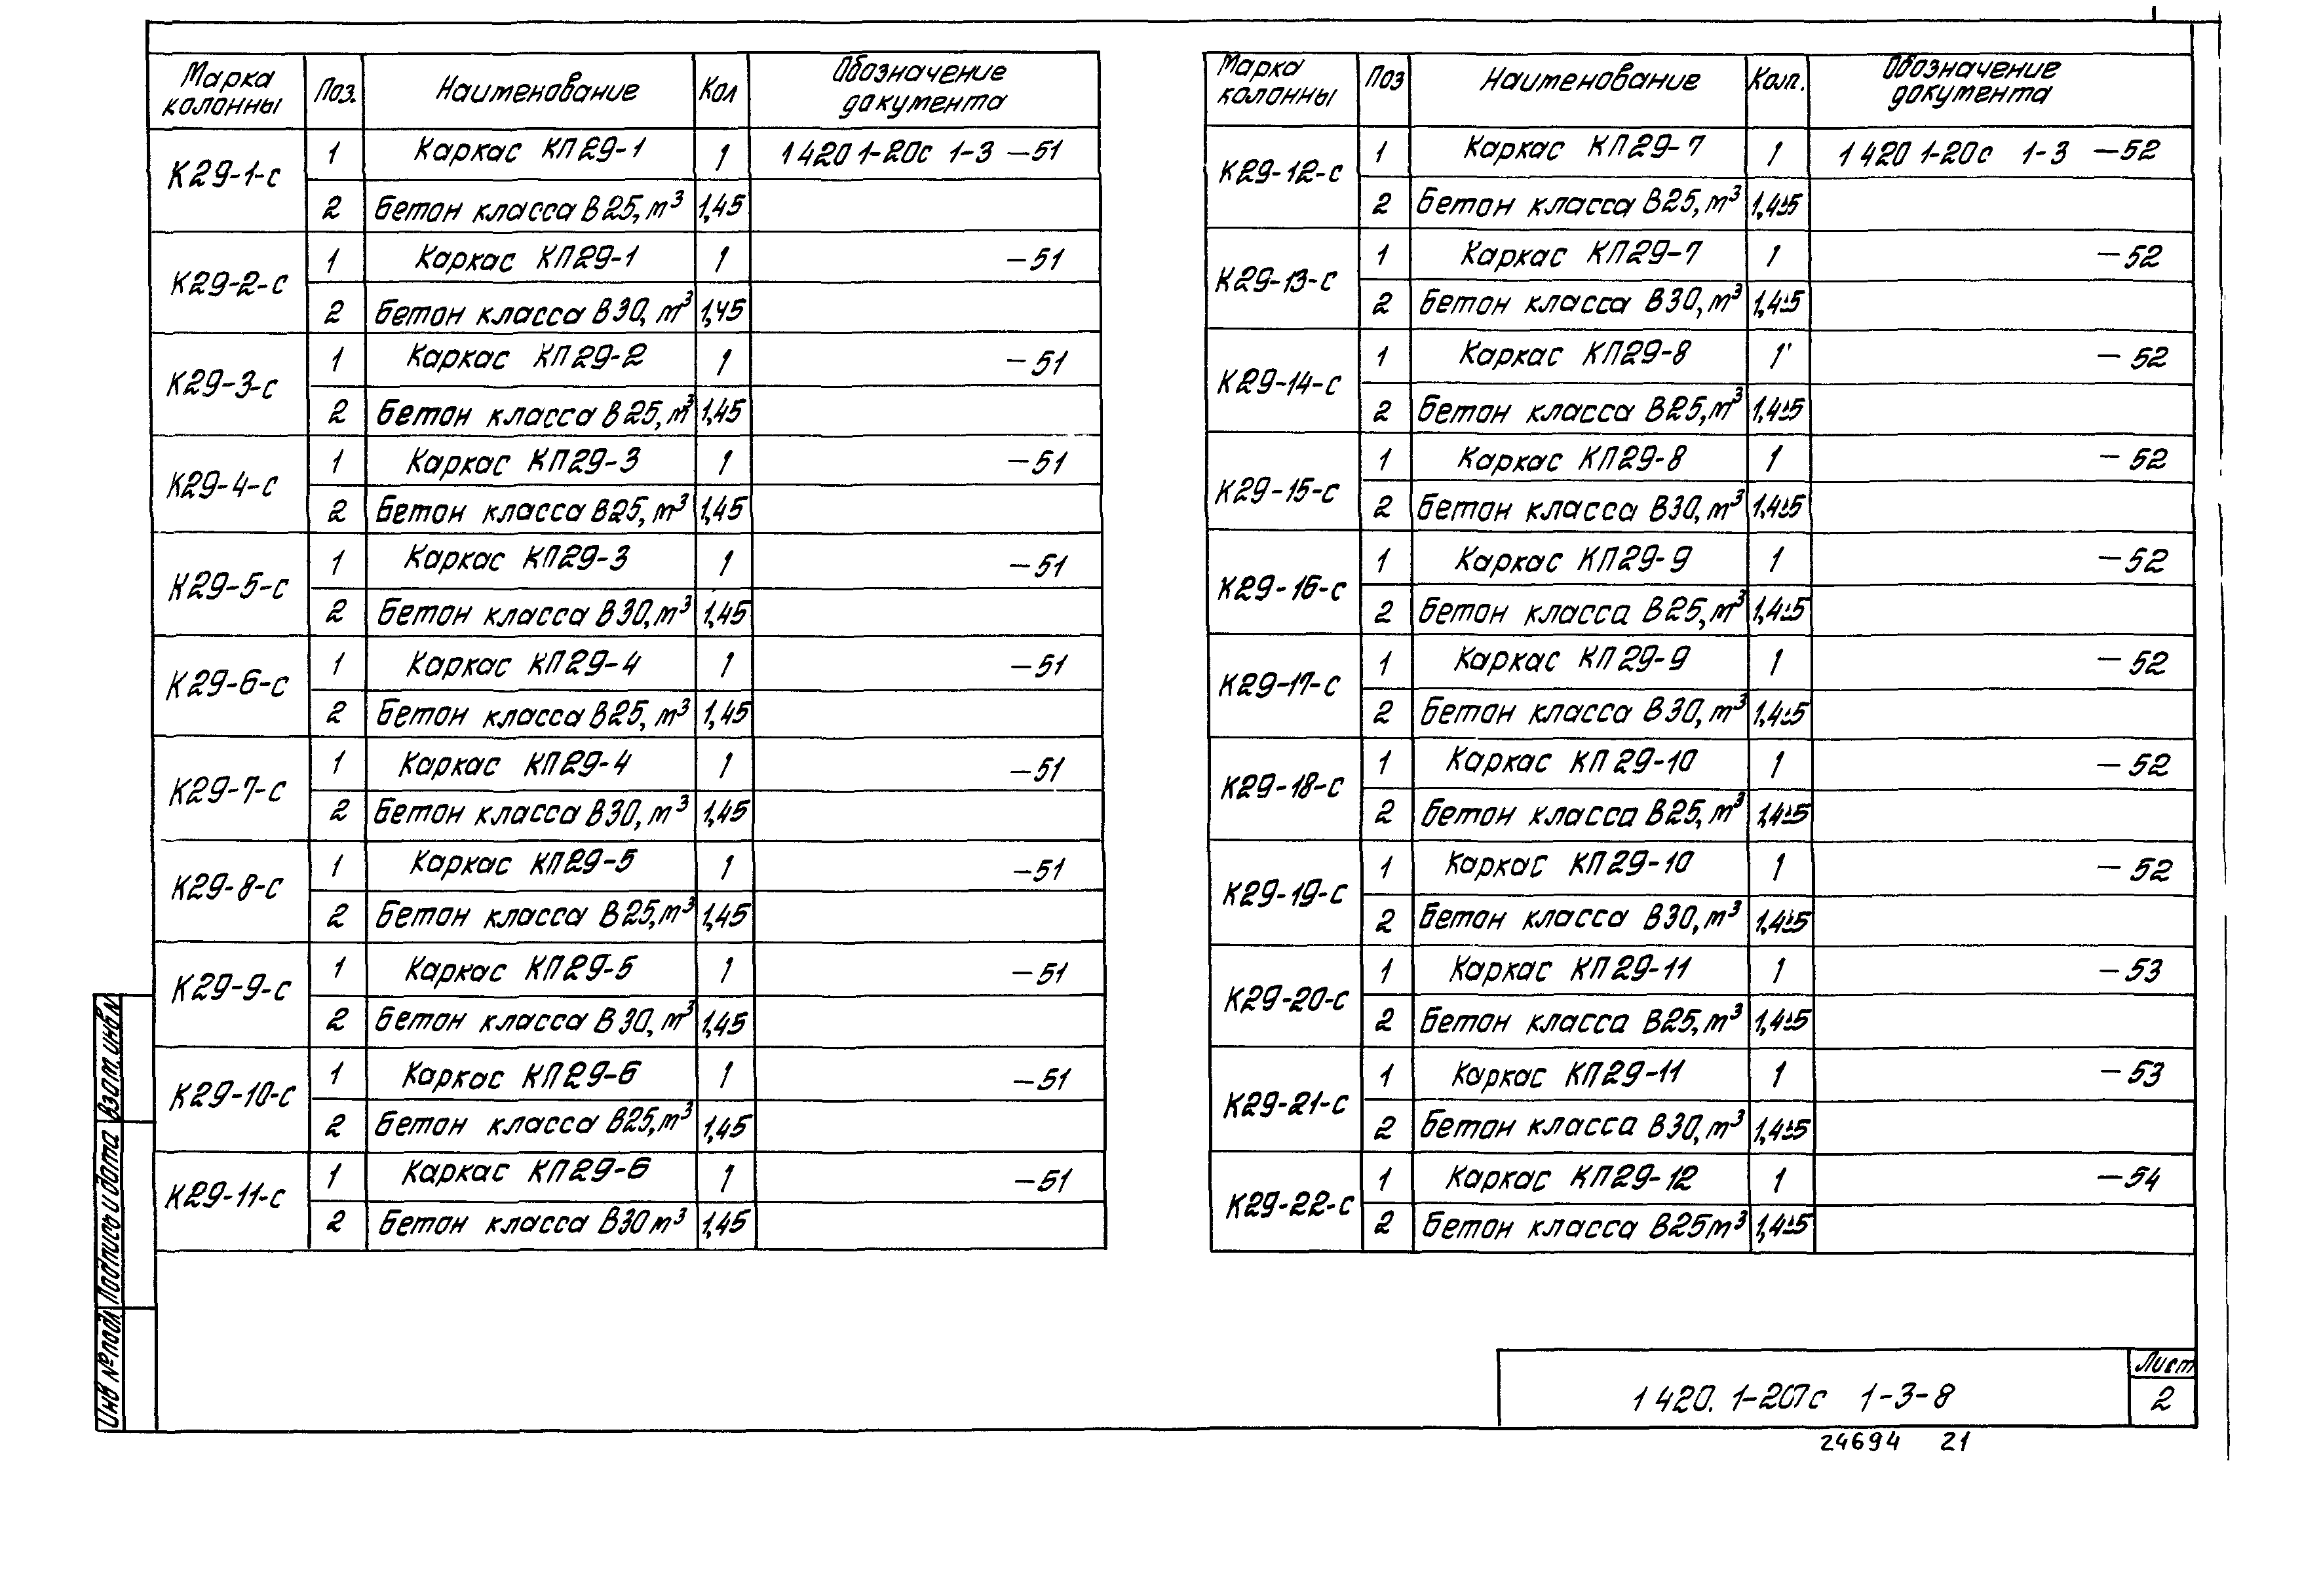 Марка колонны Поз. Наименование Кол Обозначение документа
К29-1-с 1 Каркас КП29-1 1 1 420 1-20с 1-3 -51
2 Бетон класса В25, м³ 1,45
К29-2-с 1 Каркас КП29-1 1 -51
2 Бетон класса В30, м³ 1,45
К29-3-с 1 Каркас КП29-2 1 -51
2 Бетон класса В25, м³ 1,45
К29-4-с 1 Каркас КП29-3 1 -51
2 Бетон класса В25, м³ 1,45
К29-5-с 1 Каркас КП29-3 1 -51
2 Бетон класса В30, м³ 1,45
К29-6-с 1 Каркас КП29-4 1 -51
2 Бетон класса В25, м³ 1,45
К29-7-с 1 Каркас КП29-4 1 -51
2 Бетон класса В30, м³ 1,45
К29-8-с 1 Каркас КП29-5 1 -51
2 Бетон класса В25, м³ 1,45
К29-9-с 1 Каркас КП29-5 1 -51
2 Бетон класса В30, м³ 1,45
К29-10-с 1 Каркас КП29-6 1 -51
2 Бетон класса В25, м³ 1,45
К29-11-с 1 Каркас КП29-6 1 -51
2 Бетон класса В30 м³ 1,45
Марка колонны Поз Наименование Кол. Обозначение документа
К29-12-с 1 Каркас КП29-7 1 1 420 1-20с 1-3 -52
2 Бетон класса В25, м³ 1,45
К29-13-с 1 Каркас КП29-7 1 -52
2 Бетон класса В30, м³ 1,45
К29-14-с 1 Каркас КП29-8 1 -52
2 Бетон класса В25, м³ 1,45
К29-15-с 1 Каркас КП29-8 1 -52
2 Бетон класса В30, м³ 1,45
К29-16-с 1 Каркас КП29-9 1 -52
2 Бетон класса В25, м³ 1,45
К29-17-с 1 Каркас КП29-9 1 -52
2 Бетон класса В30, м³ 1,45
К29-18-с 1 Каркас КП29-10 1 -52
2 Бетон класса В25, м³ 1,45
К29-19-с 1 Каркас КП29-10 1 -52
2 Бетон класса В30, м³ 1,45
К29-20-с 1 Каркас КП29-11 1 -53
2 Бетон класса В25, м³ 1,45
К29-21-с 1 Каркас КП29-11 1 -53
2 Бетон класса В30, м³ 1,45
К29-22-с 1 Каркас КП29-12 1 -54
2 Бетон класса В25 м³ 1,45
Взам. инв. №
Подпись и дата
Инв № подл
1 420. 1-20с 1-3-8
Лист
2
24694 21